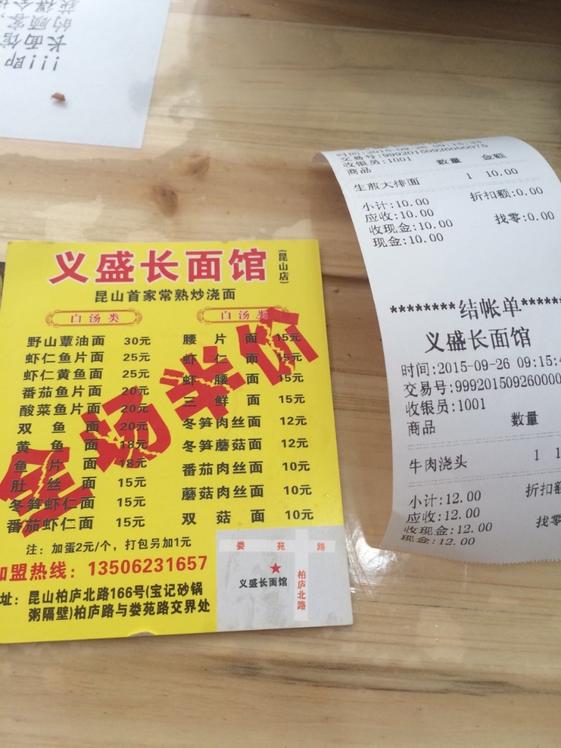 义盛长面馆
(昆山店)
昆山首家常熟炒浇面
白汤类
野山蕈油面 30元
虾仁鱼片面 25元
虾仁黄鱼面 25元
番茄鱼片面 20元
酸菜鱼片面 20元
双鱼面 20元
黄鱼面 18元
鱼片面 18元
肚丝面 15元
冬笋虾仁面 15元
番茄虾仁面 15元
白汤类
腰片面 15元
虾仁面 15元
虾腰面 15元
三鲜面 15元
冬笋肉丝面 12元
冬笋蘑菇面 12元
番茄肉丝面 10元
蘑菇肉丝面 10元
双菇面 10元
全场半价
注：加蛋2元/个，打包另加1元
加盟热线：13506231657
址：昆山柏庐北路166号(宝记砂锅
粥隔壁)柏庐路与娄苑路交界处
娄苑路
义盛长面馆
柏庐北路
收银员:1001
商品 数量 金额
生煎大排面 1 10.00
小计:10.00 折扣额:0.00
应收:10.00
收现金:10.00 找零:0.00
现金:10.00
********结帐单*****
义盛长面馆
时间:2015-09-26 09:15:4
交易号:999201509260000
收银员:1001
商品 数量
牛肉浇头 1 1
小计:12.00 折扣
应收:12.00
收现金:12.00 找零
现金:12.00